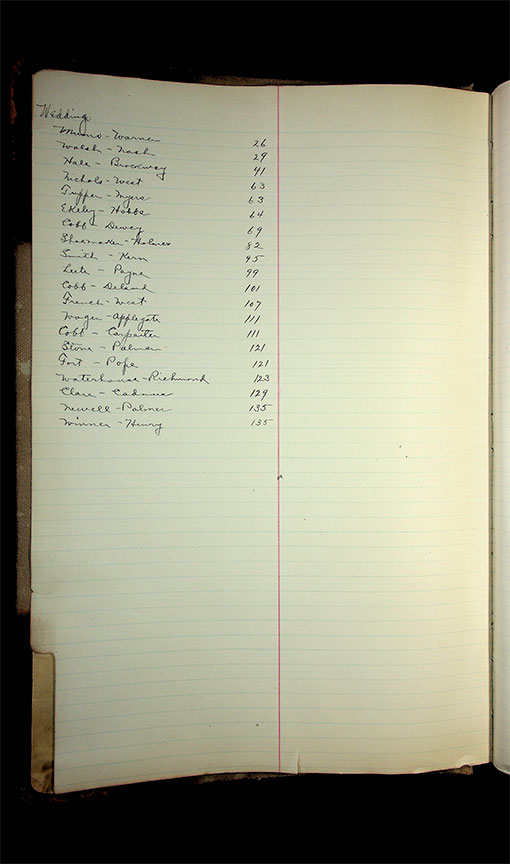 Wedding
Munro - Warner 26
Walsh - Nash 29
Hale - Brockway 41
Nichols - West 63
Tupper - Myers 63
Ekeley - Hobbs 64
Cobb - Dewey 69
Shoemaker - Holmes 82
Smith - Kern 95
Leete - Payne 99
Cobb - Deland 101
French - West 107
Wager - Applegate 111
Cobb - Carpenter 111
Stone - Palmer 121
Fort - Pope 121
Waterhouse - Richmond 123
Clare - Cadmus 129
Newell - Palmer 135
Winner - Henry 135